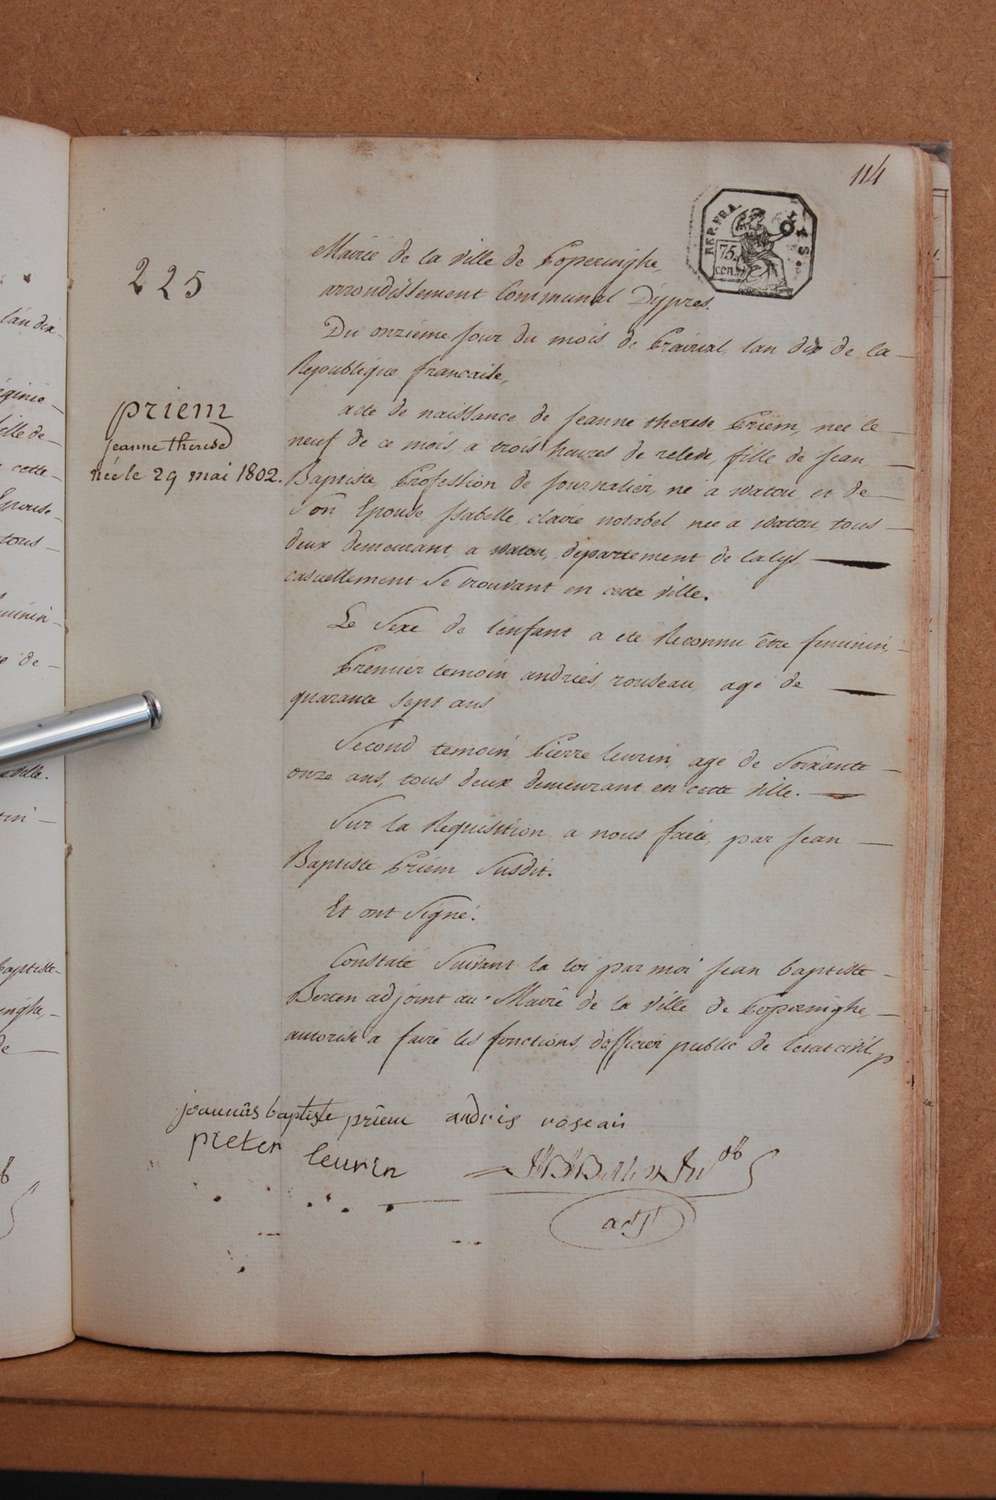 114
REP. FRA.
75
cen.
225
Mairie de la ville de Poperinghe,
arrondissement Communal D'ypres.
Du onzième jour du mois de Prairial, lan dix de la
Republique francaise,
priem
jeanne therese
née le 29 mai 1802.
acte de naissance de Jeanne therese Priëm, née le
neuf de ce mois, a trois heures de relevé, fille de Jean
Baptiste, Profession de journalier, né a watou, et de
Son Epouse Isabelle, claire notabel née a watou, tous
deux demeurant a watou, département de la lys
casuellement Se trouvant en cette ville.
Le Sexe de lenfant a eté Reconnu être feminin,
Premier temoin, andries, rouseau, agé de
quarante sept ans
Second temoin, Pierre leurin, age de Soixante
onze ans, tous deux demeurant en cette ville.
Sur la Requisition a nous faite, par Jean
Baptiste Priem Susdit.
Et ont Signé.
Constaté Suivant la loi par moi jean baptiste
Berten adjoint au Maire de la ville de Poperinghe,
autorisé a faire les fonctions, dofficier public de letat civil
joannes baptiste prîem andris roseau
pieter leurin
adjt
lan dix
fille de
cette
Epouse
tous
de
ville.
baptiste
de